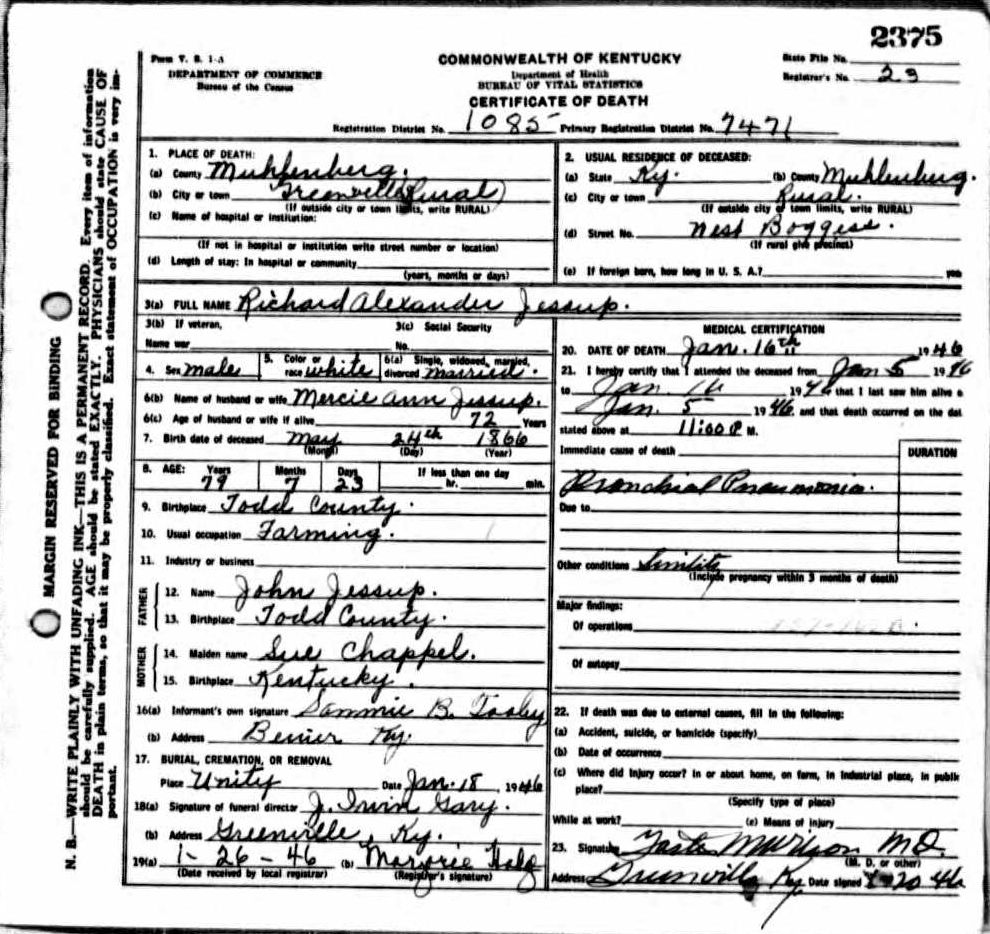 2375
Form V. S. 1-A
DEPARTMENT OF COMMERCE
Bureau of the Census
COMMONWEALTH OF KENTUCKY
Department of Health
BUREAU OF VITAL STATISTICS
CERTIFICATE OF DEATH
State File No.
Registrar's No. 23
Registration District No. 1085 Primary Registration District No. 7471
MARGIN RESERVED FOR BINDING
N. B.—WRITE PLAINLY WITH UNFADING INK—THIS IS A PERMANENT RECORD. Every item of information
should be carefully supplied. AGE should be stated EXACTLY. PHYSICIANS should state CAUSE OF
DEATH in plain terms, so that it may be properly classified. Exact statement of OCCUPATION is very im-
portant.
1. PLACE OF DEATH:
(a) County Muhlenberg.
(b) City or town Greenville (Rural)
(If outside city or town limits, write RURAL)
(c) Name of hospital or institution:
(If not in hospital or institution write street number or location)
(d) Length of stay: In hospital or community
(years, months or days)
2. USUAL RESIDENCE OF DECEASED:
(a) State Ky. (b) County Muhlenberg.
(c) City or town Rural.
(If outside city or town limits, write RURAL)
(d) Street No. West Boggess.
(If rural give precinct)
(e) If foreign born, how long in U. S. A.? yea
3(a) FULL NAME Richard Alexander Jessup.
3(b) If veteran,
Name war
3(c) Social Security
No.
4. Sex male
5. Color or
race white
6(a) Single, widowed, married,
divorced married.
6(b) Name of husband or wife Mercie Ann Jessup.
6(c) Age of husband or wife if alive 72 Years
7. Birth date of deceased May 24th 1866
(Month) (Day) (Year)
8. AGE: Years Months Days If less than one day
79 7 23 hr. min.
9. Birthplace Todd County.
10. Usual occupation Farming.
11. Industry or business
FATHER
12. Name John Jessup.
13. Birthplace Todd County.
MOTHER
14. Maiden name Sue Chappel.
15. Birthplace Kentucky.
16(a) Informant's own signature Sammie B. Tooley
(b) Address Ky.
17. BURIAL, CREMATION, OR REMOVAL
Place Unity Date Jan. 18, 1946
18(a) Signature of funeral director J. Irvin Gary.
(b) Address Greenville, Ky.
19(a) 1-26-46 (b) Marjorie
(Date received by local registrar) (Registrar's signature)
MEDICAL CERTIFICATION
20. DATE OF DEATH Jan. 16th 1946
21. I hereby certify that I attended the deceased from Jan 5 1946
to Jan 16 1946 that I last saw him alive o
Jan. 5 1946 and that death occurred on the dat
stated above at 11:00 P M.
Immediate cause of death
DURATION
Bronchial Pneumonia.
Due to
Other conditions
(Include pregnancy within 3 months of death)
Major findings:
Of operations
Of autopsy
22. If death was due to external causes, fill in the following:
(a) Accident, suicide, or homicide (specify)
(b) Date of occurrence
(c) Where did injury occur? In or about home, on farm, in industrial place, in publi
place?
(Specify type of place)
While at work? (e) Means of injury
23. Signature M.D.
(M. D. or other)
Address Greenville Ky. Date signed 20 46